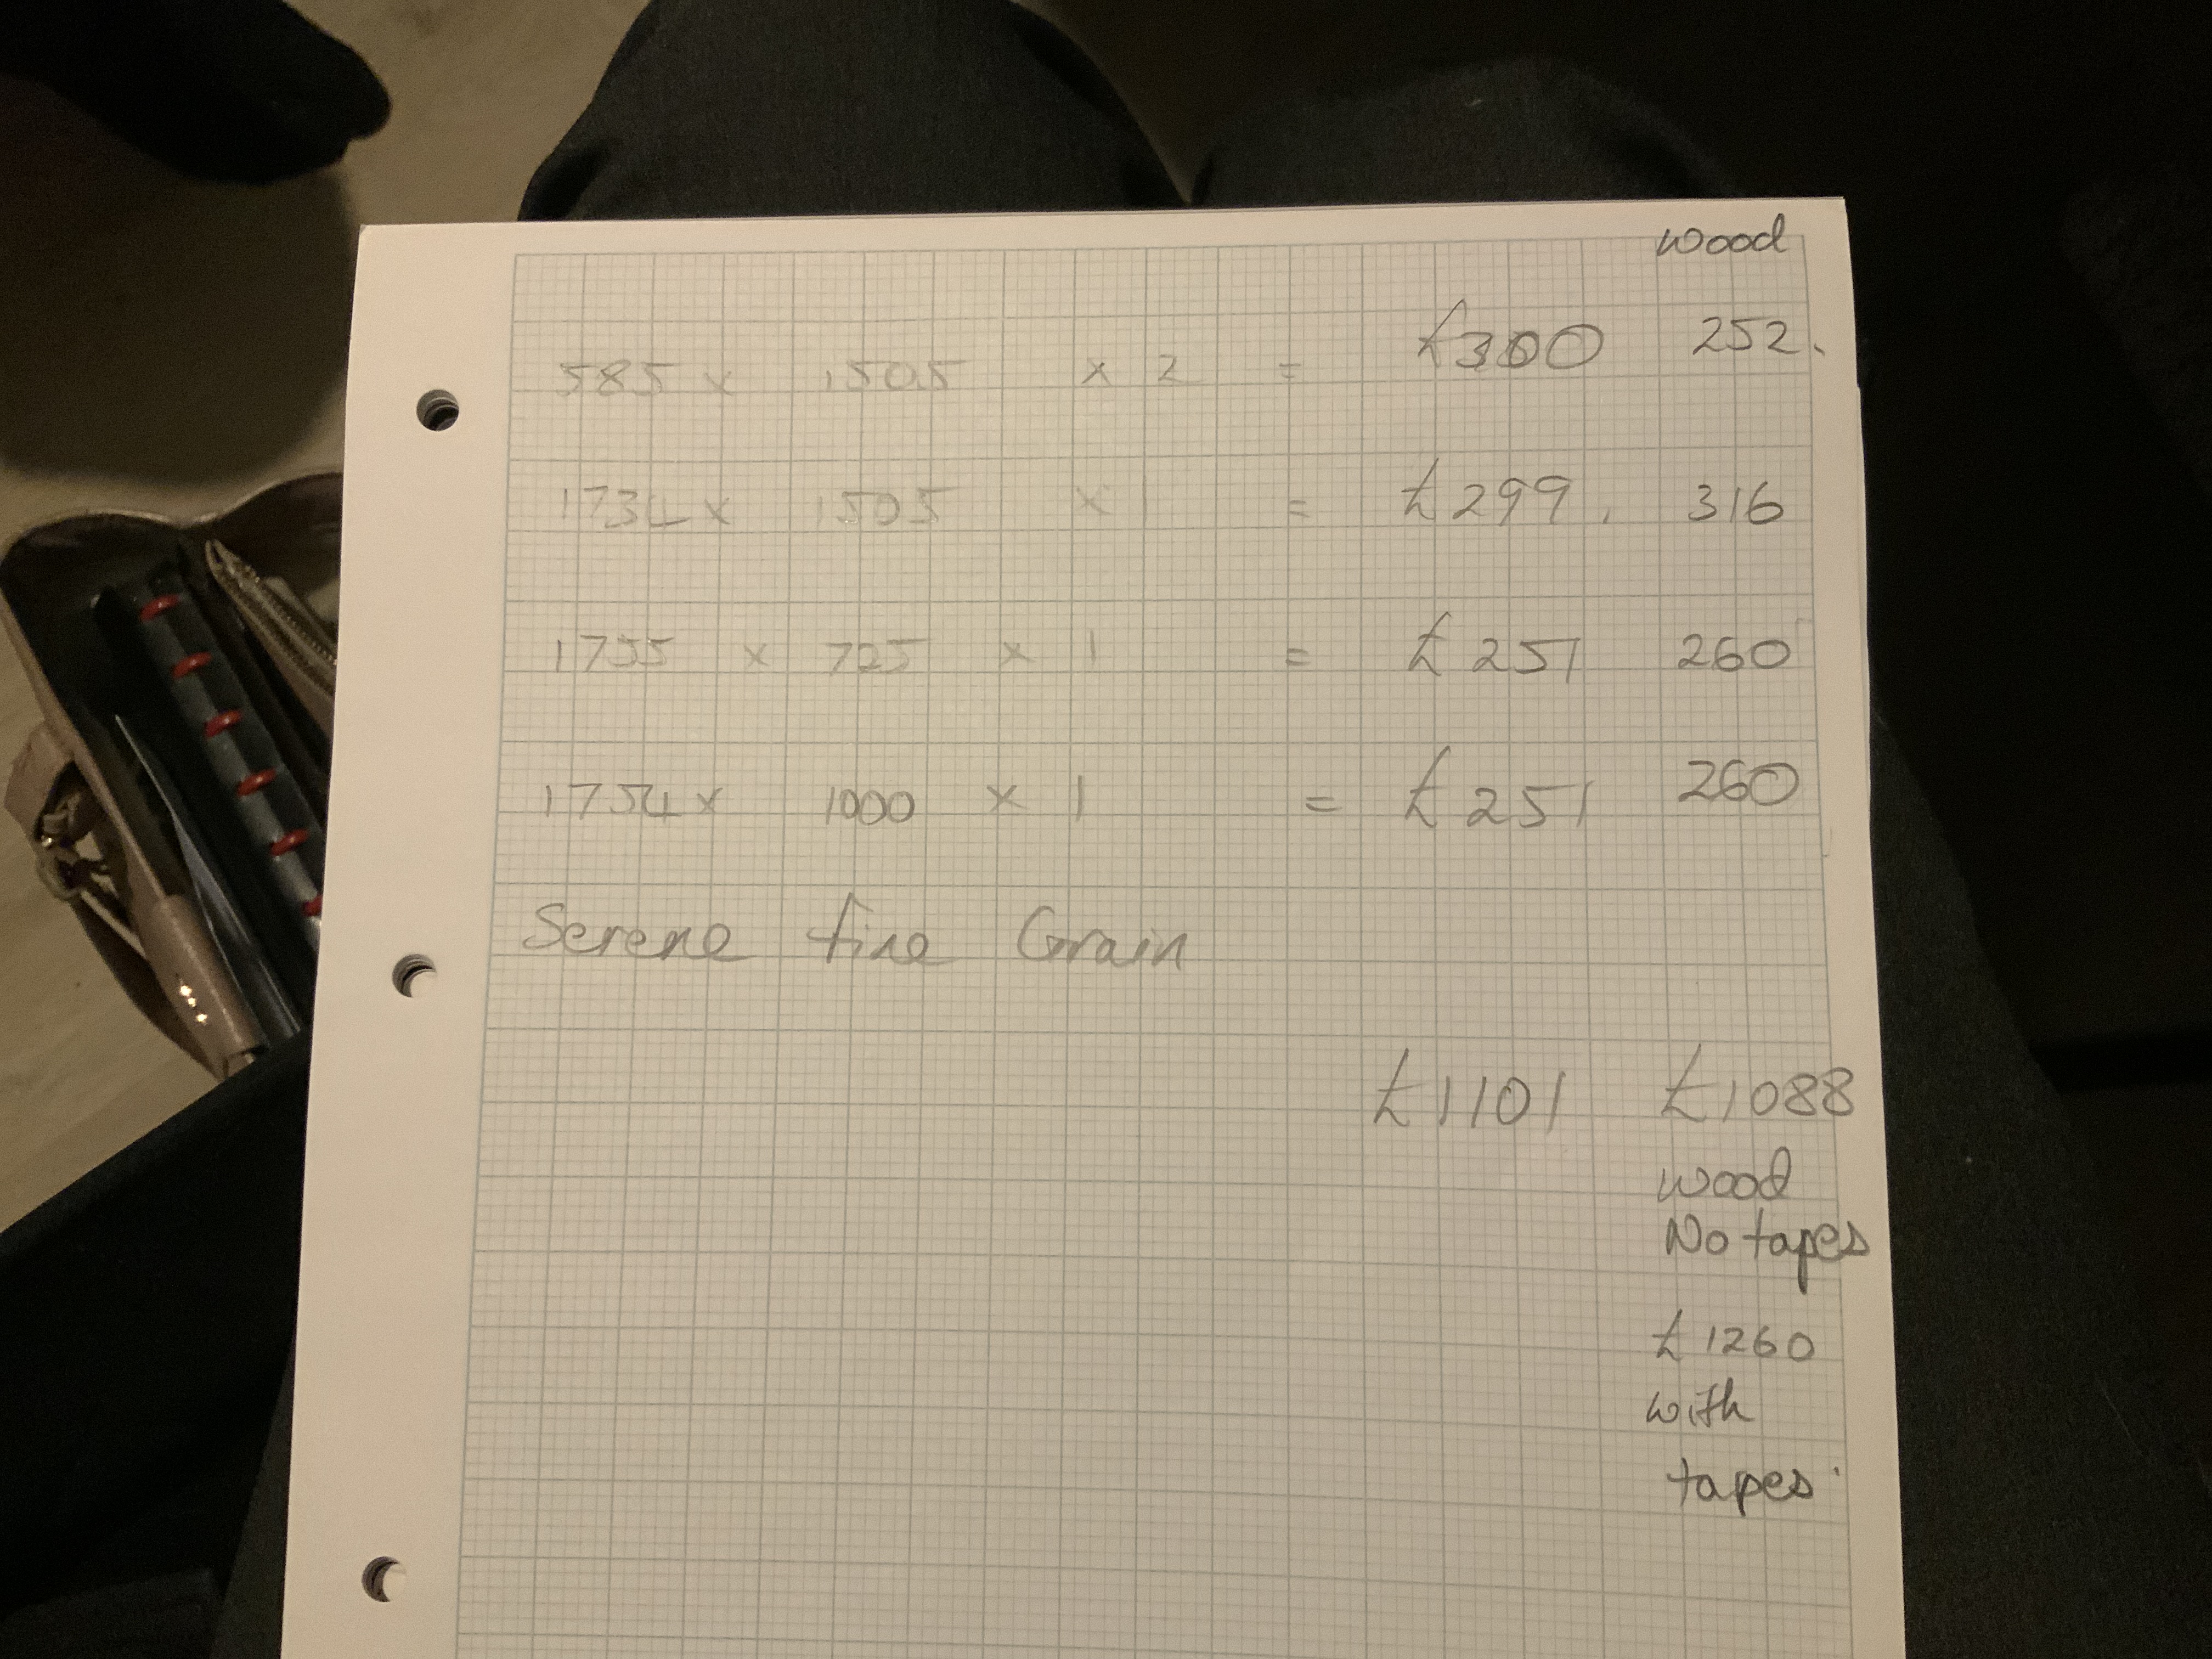 wood
585 x 1505 x 2 = £300 252.
1734 x 1505 x 1 = £299. 316
1755 x 725 x 1 = £251 260
1754 x 1000 x 1 = £251 260
Serene fine Grain
£1101 £1088
wood
No tapes
£1260
with
tapes